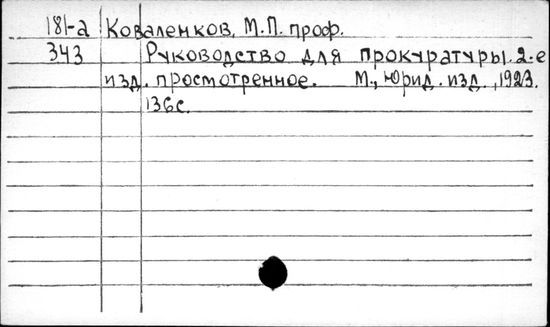 181-а Коваленков, М.П. проф.
343 Руководство для прокуратуры. 2-е
изд. просмотренное. М., Юрид. изд., 1923.
136с.